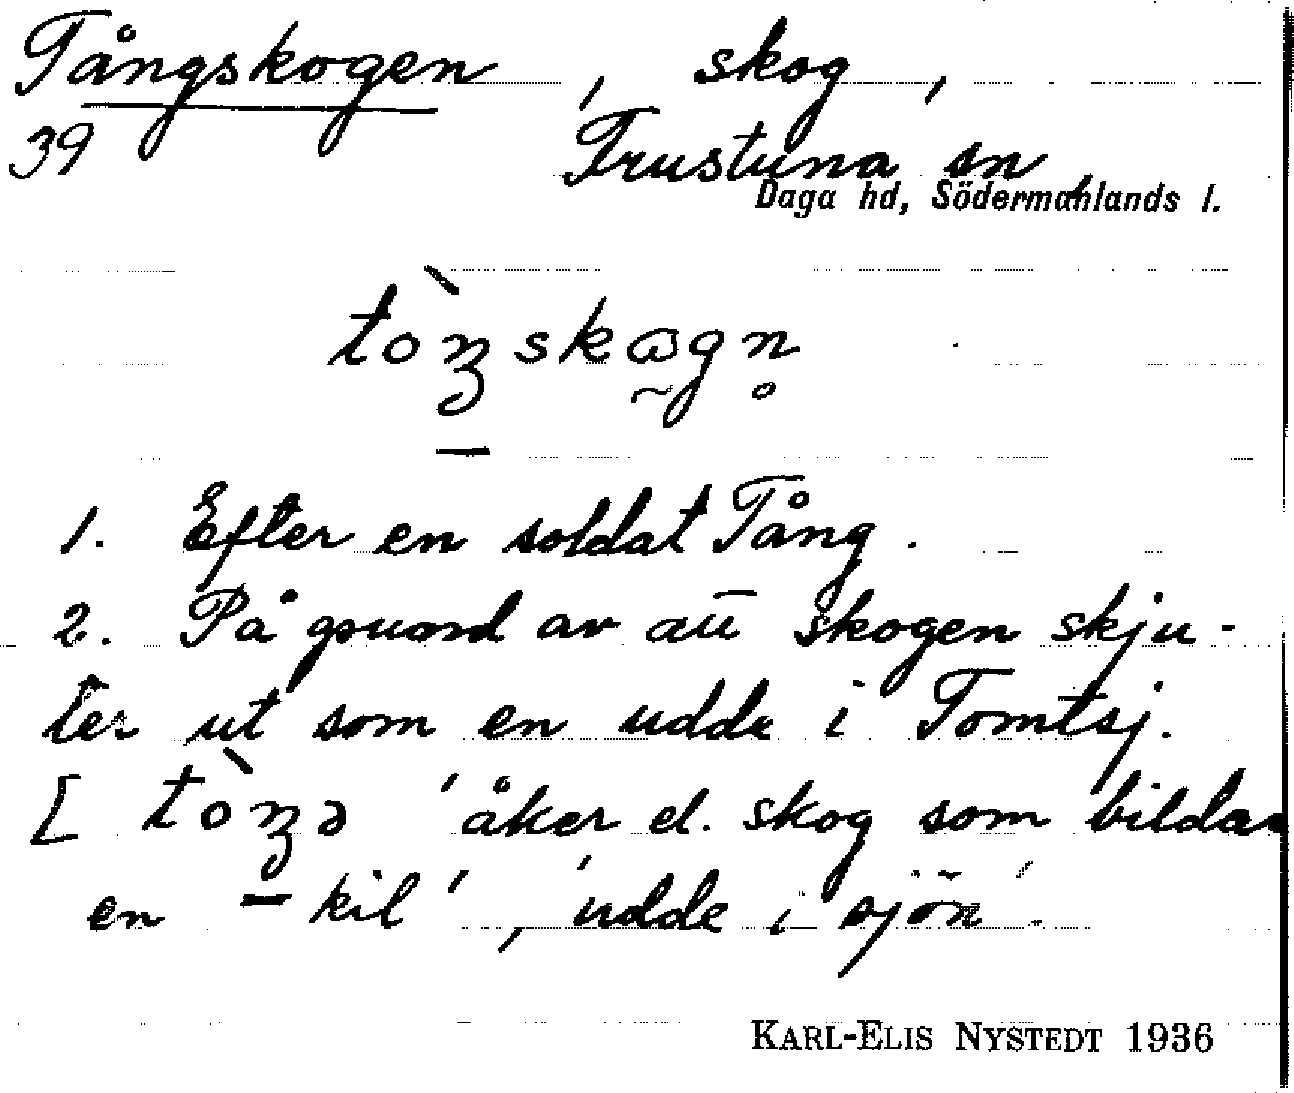 Tångskogen, skog,
39 Frustuna sn
Daga hd, Södermanlands l.
tòŋskωgn̥
1. Efter en soldat Tång.
2. På grund av att skogen skju-
ter ut som en udde i Tomtsj.
[ tòŋə 'åker el. skog som bildar
en kil', 'udde i sjön'.
KARL-ELIS NYSTEDT 1936